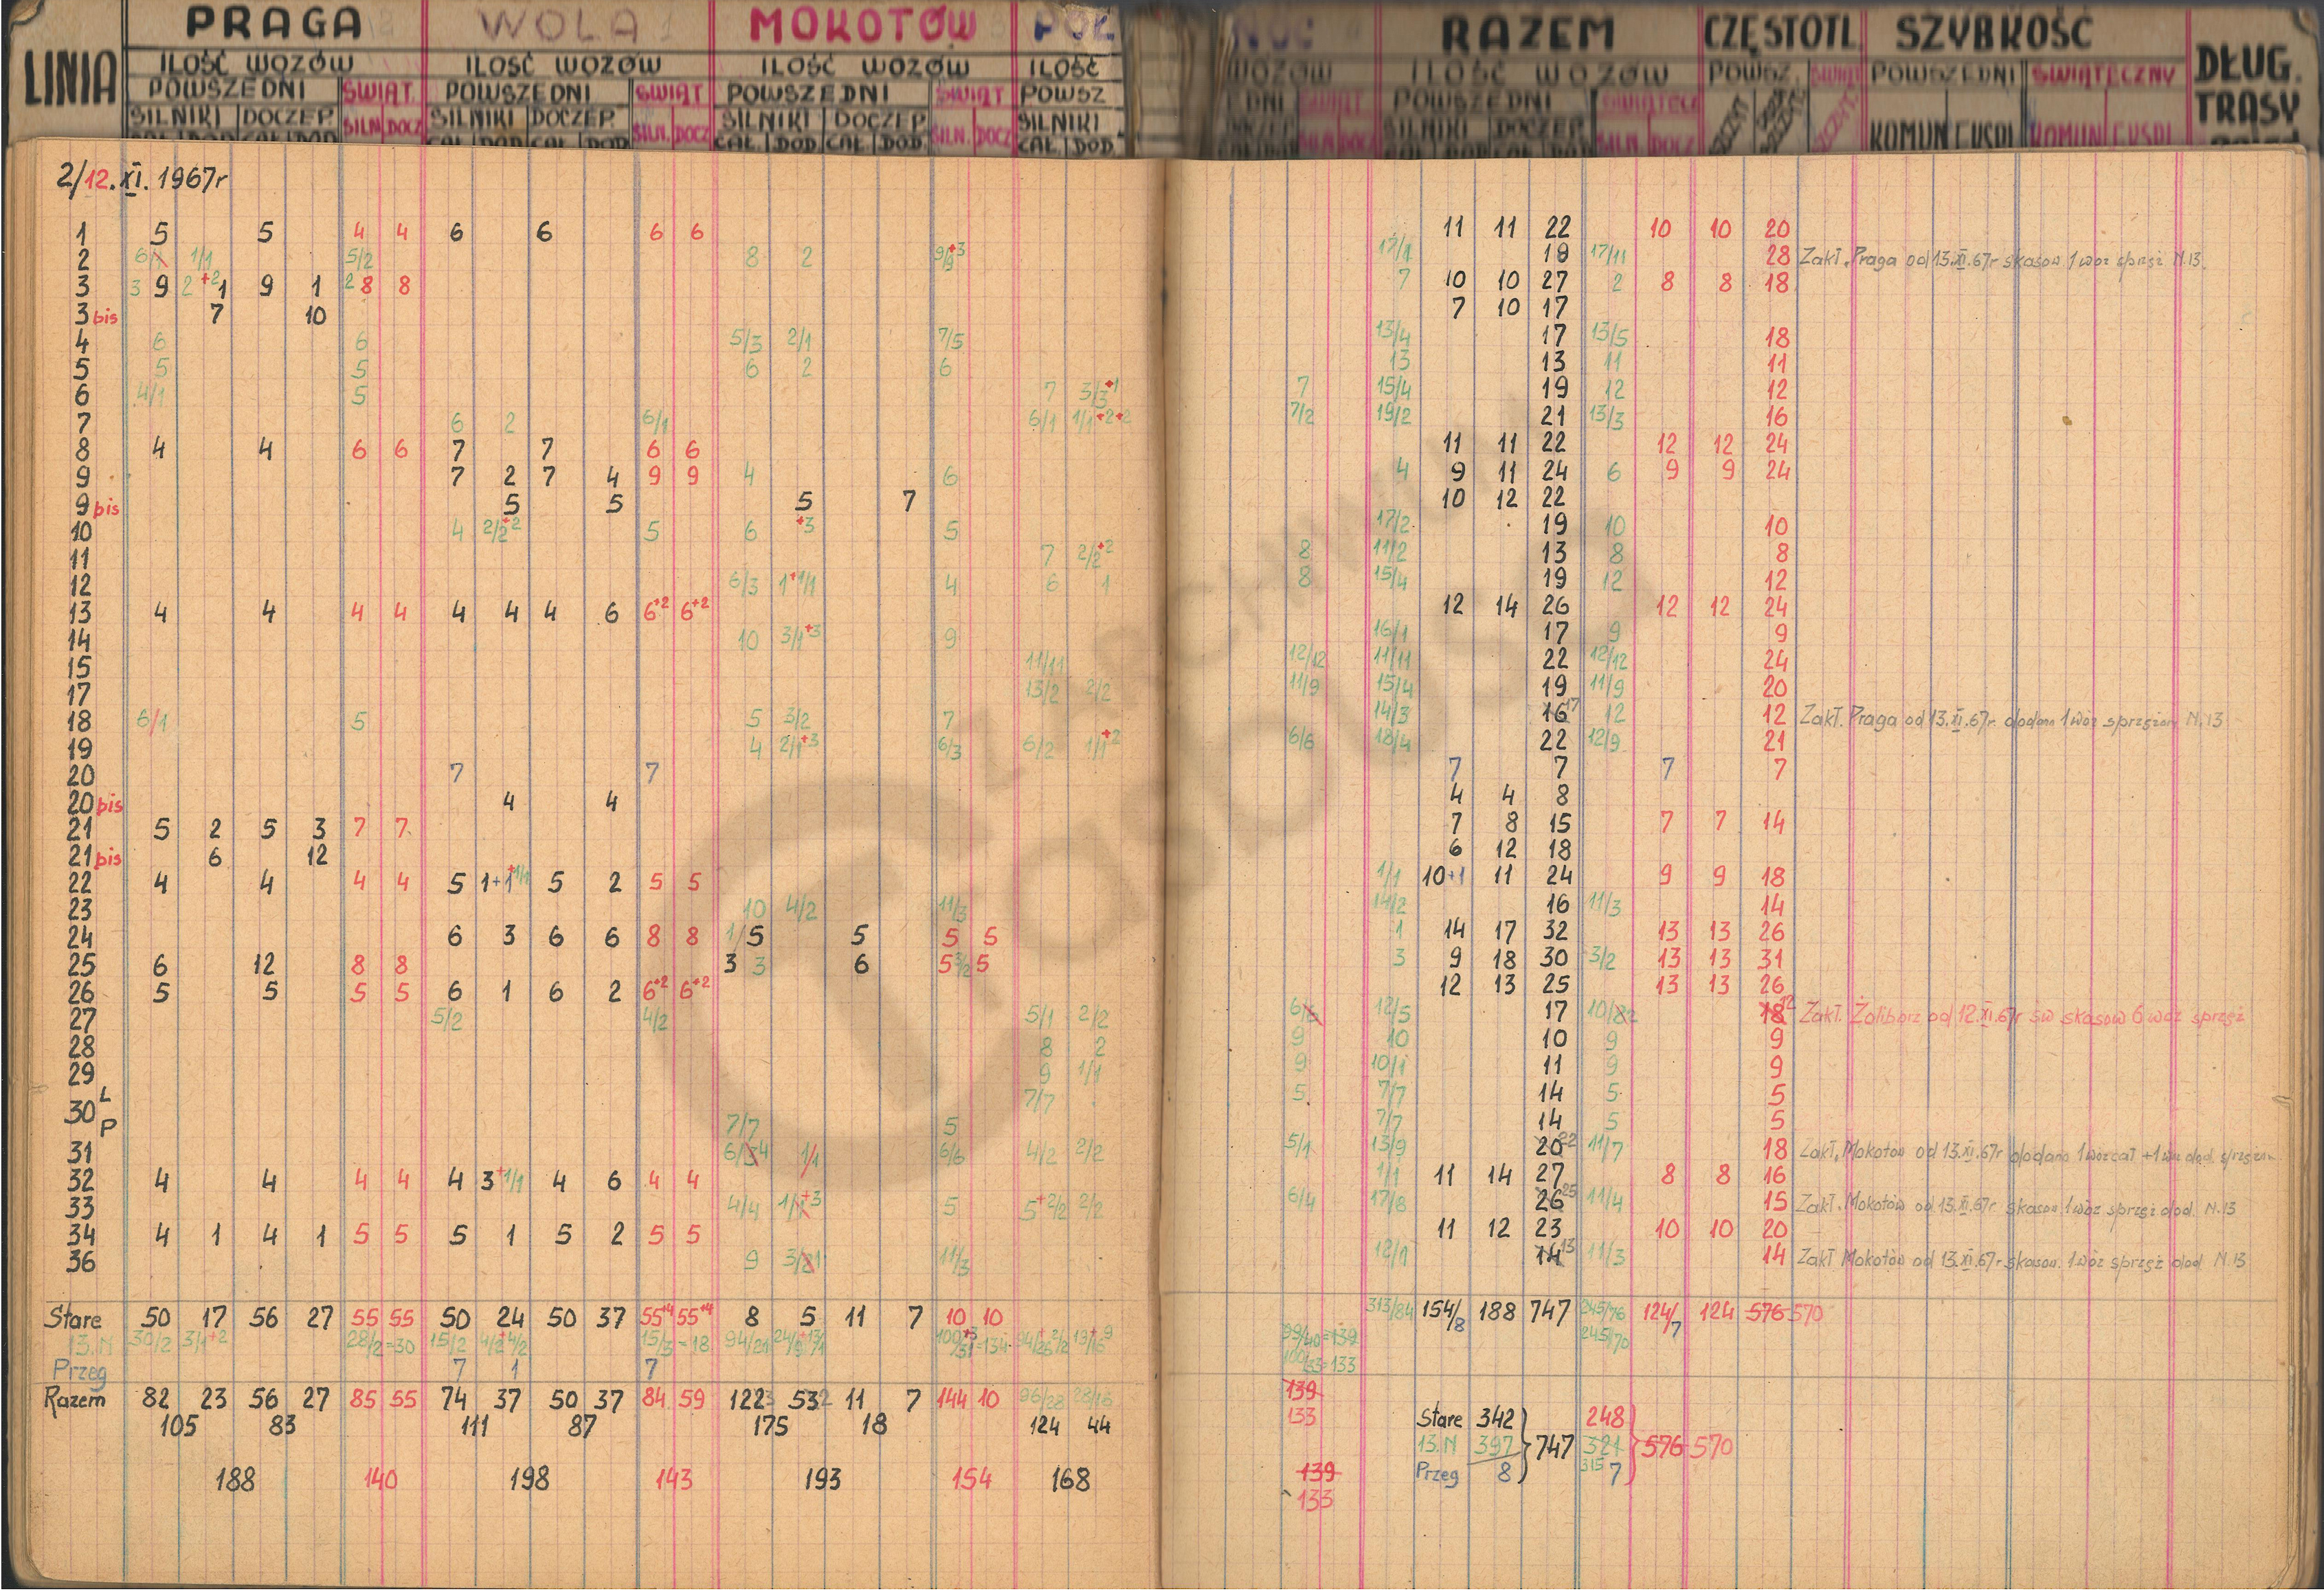 LINIA PRAGA WOLA MOKOTÓW PÓŁ NOC RAZEM CZĘSTOTL. SZYBKOŚĆ DŁUG. TRASY
ILOŚĆ WOZÓW ILOŚĆ WOZÓW ILOŚĆ WOZÓW ILOŚĆ WOZÓW ILOŚĆ WOZÓW
POWSZEDNI ŚWIĄT. POWSZEDNI ŚWIĄT POWSZEDNI ŚWIĄT POWSZ EDNI ŚWIĄT. POWSZEDNI ŚWIĄTECZ POWSZ. ŚWIĄT POWSZEDNI ŚWIĄTECZNY
SILNIKI DOCZEP. SILN. DOCZ SILNIKI DOCZEP. SILN. DOCZ SILNIKI DOCZEP SILN. DOCZ SILNIKI DOCZEP SILN. DOCZ SILNIKI DOCZEP SILN. DOCZ KOMUN EKSPL KOMUN EKSPL
CAŁ DOD CAŁ DOD CAŁ DOD CAŁ DOD CAŁ DOD CAŁ DOD CAŁ DOD
2/12.XI.1967r
1 5 5 4 4 6 6 6 6 11 11 22 10 10 20
2 1/1 5/2 8 2 9/9+3 17/1 19 17/11 28 Zakł. Praga od 13.XI.67r skasow 1 wóz sprzęż N.13.
3 3 9 2+2 1 9 1 2 8 8 7 10 10 27 2 8 8 18
3 bis 7 10 7 10 17
4 6 6 5/3 2/1 7/5 13/4 17 13/5 18
5 5 5 6 2 6 13 13 11 11
6 4/1 5 7 3/3+1 7 15/4 19 12 12
7 6 2 6/1 6/1 1/1+2+2 7/2 19/2 21 13/3 16
8 4 4 6 6 7 7 6 6 11 11 22 12 12 24
9 7 2 7 4 9 9 4 6 4 9 11 24 6 9 9 24
9 bis 5 5 5 7 10 12 22
10 4 2/2+2 5 6 +3 5 17/2 19 10 10
11 7 2/2+2 8 11/2 13 8 8
12 6/3 1+1/1 4 6 1 8 15/4 19 12 12
13 4 4 4 4 4 4 4 6 6+2 6+2 12 14 26 12 12 24
14 10 3/1+3 9 16/1 17 9 9
15 11/11 12/12 11/11 22 12/12 24
17 13/2 2/2 11/9 15/4 19 11/9 20
18 6/1 5 5 3/2 7 14/3 16 17 12 12 Zakł. Praga od 13.XI.67r. dodano 1 wóz sprzężon N.13
19 4 2/1+3 6/3 6/2 1/1+2 6/6 18/4 22 12/9 21
20 7 7 7 7 7 7
20 bis 4 4 4 4 8
21 5 2 5 3 7 7 7 8 15 7 7 14
21 bis 6 12 6 12 18
22 4 4 4 4 5 1+1+1/1 5 2 5 5 1/1 10+1 11 24 9 9 18
23 10 4/2 11/3 14/2 16 11/3 14
24 6 3 6 6 8 8 1/5 5 5 5 1 14 17 32 13 13 26
25 6 12 8 8 3 3 6 5 3/2 5 3 9 18 30 3/2 13 13 31
26 5 5 5 5 6 1 6 2 6+2 6+2 12 13 25 13 13 26
27 5/2 4/2 5/1 2/2 6/6 12/5 17 10/82 18 12 Zakł. Żoliborz od 12.XI.67r św skasow 6 wóz sprzęż
28 8 2 9 10 10 9 9
29 9 1/1 9 10/1 11 9 9
30 L 7/7 5 7/7 14 5 5
P 7/7 5 7/7 14 5 5
31 6/5 4 1/1 6/6 4/2 2/2 5/1 13/9 20 22 11/7 18 Zakł. Mokotów od 13.XI.67r dodano 1 wóz cał +1 wóz dod. sprzężon
32 4 4 4 4 4 3+1/1 4 6 4 4 1/1 11 14 27 8 8 16
33 4/4 1/1+3 5 5+2/2 2/2 6/4 17/8 26 25 11/4 15 Zakł. Mokotów od 13.XI.67r skasow 1 wóz sprzęż dod. N.13
34 4 1 4 1 5 5 5 1 5 2 5 5 11 12 23 10 10 20
36 9 3/21 11/3 12/1 14 13 11/3 14 Zakł Mokotów od 13.XI.67r skasow. 1 wóz sprzęż dod. N.13
Stare 50 17 56 27 55 55 50 24 50 37 55+4 55+4 8 5 11 7 10 10 313/84 154/8 188 747 245/76 124/7 124 576 570
13.N 30/2 3/1+2 28/2=30 15/2 4/2+4/2 15/3=18 99/40=139 245/70
Przeg 7 1 7 100/33=133
Razem 82 23 56 27 85 55 74 37 50 37 84 59 122 53 11 7 144 10 96/28 28/16 139
105 83 111 87 175 18 124 44 133 Stare 342 248
13.N 397 747 321 576 570
188 140 198 143 193 154 168 139 Przeg 8 315 7
133